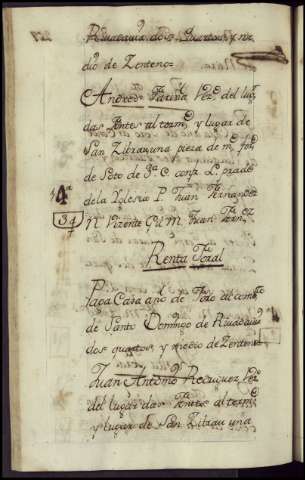 Riuadauia dos Quartos y me
dio de Zenteno=
Andres Fariña Vez.º del lug.r
das Fontes al term.º y lugar de
San Zibrau una pieza de m.º fer.
de Soto de 3.ª C. conf. L. prado
de la Yglesia P. Juan Fernandez
N. Vizente Gil M. Juan Frñz
34
Renta Foral
Paga Cada año de Foro al comb.to
de Santo Domingo de Riuadauia
dos quartos y medio de Zenteno
Juan Antonio Rodriguez Vez.º
del lugar das Fontes al term.º
y lugar de San Zibrau una